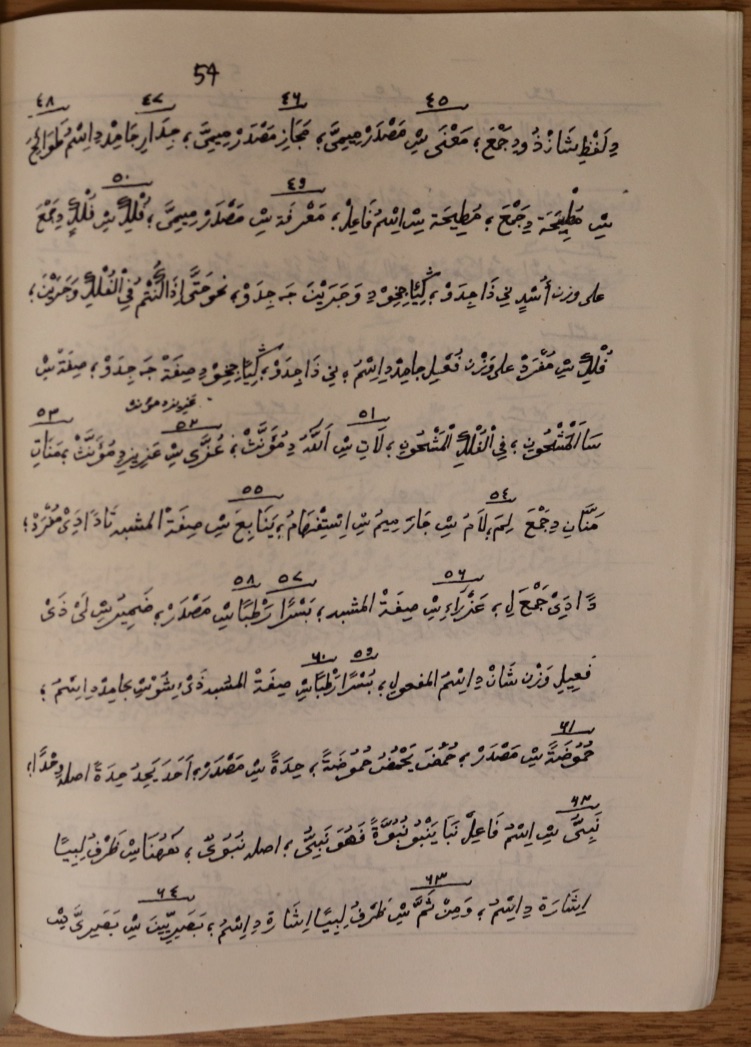 54
٤٥ ٤٦ ٤٧ ٤٨
دِلَفْظِ شَاذْ ذُودِجَمْعَ؛ مَعْنَى سِ مَصْدَرْ مِيمِىَّ؛ مَجَازِ مَصْدَرْ مِيمِىَّ؛ جِدَارِ جَامِدْ دِاِسْمُ طَوَائِحَ
٤٩ ٥٠
سِ مُطِيحَة دِجَمْعَ؛ مُطِيحَة سِ اِسْمُ فَاعِلْ؛ مَعْرِفَة سِ مَصْدَرْ مِيمِىَّ؛ فُلْكِ سِ فُلْكٍ دِجَمْعَ
على وزن اُسْدٍ نِي ذَا جِدَوْ؛ وَجَرَيْنَ جَه جِدَوْ؛ نحو حَتَّى اِذَا كُنْتُمْ فِي الْفُلْكِ وَجَرَيْنَ؛
فُلْكِ سِ مُفْرَدْ على وَزْن قُفْلِ جامِدْ دِاِسْمُ؛ نِي ذَا جِدَوْ؛ صِفَةْ جَه جِدَوْ؛ صِفَةْ سِ
عزيزه مؤنث
٥١ ٥٢ ٥٣
سَا الْمَشْحُونِ؛ فِي الْفُلْكِ الْمَشْحُونِ؛ لَاتِ سِ اَللّٰهُ دِمُؤَنَّثْ؛ عُزَّى سِ عَزِيزِ دِمُؤَنَّثْ؛ مَنَاتِ
٥٤ ٥٥
مَنَّانِ دِجَمْعَ لِمَ؛ لَامُ سِ جَارَ مِيمُ سِ اِسْتِفْهَامُ؛ يَنَابِعَ سِ صِفَةْ المشبه تَا دَادِىْ مُفْرَدْ؛
٥٦ ٥٧ ٥٨
دَادِىْ جَمْعَ لِ؛ عَذْرَاءِ سِ صِفَةْ المشبه؛ بَسْرًا رَطْبًا سِ مَصْدَرْ؛ ضَمِيرُ سِ لَىْ ذَىْ
٥٩ ٦٠
فَعِيلِ وَزْن شَانْ دِاِسْمُ المفعول؛ بُسْرًا رُطْبًا سِ صِفَةْ المشبه جَامِدْ دِاِسْمُ؛
٦١
حُمُوضَةً سِ مَصْدَرْ؛ حَمُضَ يَحْمُضُ حُمُوضَةً؛ حِدَةً سِ مَصْدَرْ؛ اَحَدَ يَحِدُ حِدَةً اصله وِحْدًا؛
٦٢
نَبِىٌّ سِ اِسْمُ فَاعِلْ نَبَا يَنْبُو نُبُوَّةً فَهُوَ نَبِىٌّ؛ اصله نَبُوىٌ؛ هَهُنَا سِ ظَرْفُ لِيبِيَّا
٦٣ ٦٤
اِشَارَة دِاِسْمُ؛ وَمِنْ ثَمَّ سِ ظَرْفُ لِيبِيَّا اِشَارَة دِاِسْمُ؛ بَصَرِيِّينَ سِ بَصَرِىَّ سِ